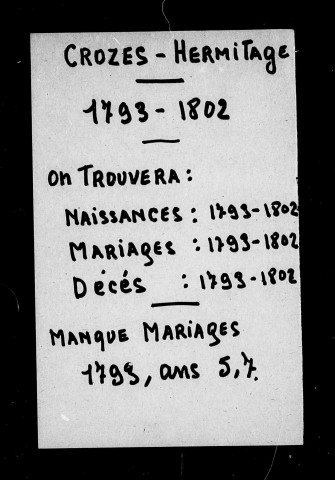 CROZES - HERMITAGE
1793 - 1802
On TROUVERA :
NAISSANCES : 1793-1802
MARIAGES : 1793-1802
Décés : 1793-1802
MANQUE MARIAGES
1793, ans 5, 7.